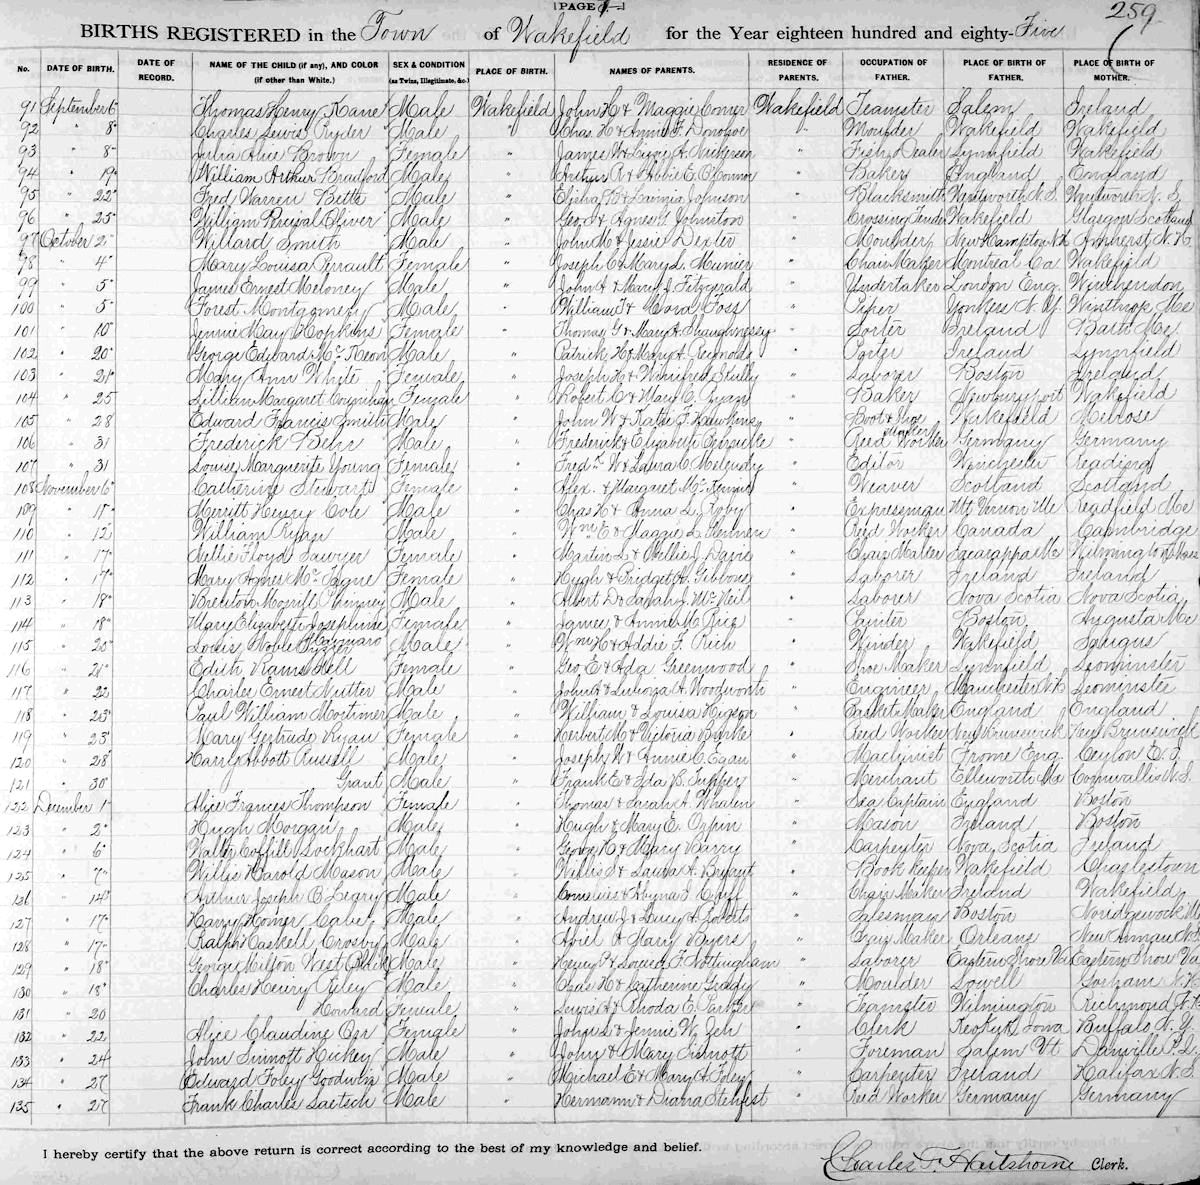 PAGE
259
BIRTHS REGISTERED in the Town of Wakefield for the Year eighteen hundred and eighty-Five
No. DATE OF BIRTH. DATE OF RECORD. NAME OF THE CHILD (if any), AND COLOR (if other than White.) SEX & CONDITION (as Twins, Illegitimate, &c.) PLACE OF BIRTH. NAMES OF PARENTS. RESIDENCE OF PARENTS. OCCUPATION OF FATHER. PLACE OF BIRTH OF FATHER. PLACE OF BIRTH OF MOTHER.
91 September 6 Thomas Henry Kane Male Wakefield John H & Maggie Comer Wakefield Teamster Salem Ireland
92 " 8 Charles Lewis Ryder Male " Chas H & Annie F. Donohoe " Moulder Wakefield Wakefield
93 " 8 Julia Alice Brown Female " James W & Lizzie A. Nickerson " Fish Dealer Lynnfield Wakefield
94 " 19 William Arthur Bradford Male " Arthur A & Abbie E. O'Connor " Baker England England
95 " 22 Fred Warren Betts Male " Elisha D & Lavinia Johnson " Blacksmith Wentworth N.S. Wentworth N.S.
96 " 25 William Percival Oliver Male " Geo & Agnes Y. Johnston " Crossing Tender Wakefield Glasgow Scotland
97 October 2 Willard Smith Male " John M & Jessie Dexter " Moulder New Hampton N.H. Amherst N.H.
98 " 4 Mary Louisa Perrault Female " Joseph C & Mary L. Munier " Chair Maker Montreal Ca. Wakefield
99 " 5 James Ernest Meloney Male " John A & Mary J. Fitzgerald " Undertaker London Eng. Winchendon
100 " 5 Forest Montgomery Male " William T & Cora Foss " Piper Yonkers N.Y. Winthrop Me
101 " 10 Jennie May Hopkins Female " Thomas G & Mary A. Shaughnessy " Sorter Ireland Bath Me.
102 " 20 George Edward McKeon Male " Patrick H & Mary A. Reynolds " Porter Ireland Lynnfield
103 " 21 Mary Ann White Female " Joseph H & Winifred Skully " Laborer Boston Ireland
104 " 25 Lillian Margaret Counihan Female " Robert C & Mary C. Ryan " Baker Newburyport Wakefield
105 " 28 Edward Francis Smith Male " John W & Katie F. Hawkins " Boot & Shoe Maker Wakefield Melrose
106 " 31 Frederick Behr Male " Frederick & Elizabeth " Reed Worker Germany Germany
107 " 31 Louise Marguerite Young Female " Fred W & Laura C. Melendy " Editor Winchester Reading
108 November 6 Catherine Stewart Female " Alex. & Margaret " Weaver Scotland Scotland
109 " Merritt Henry Cole Male " Chas H & Anna L. " Expressman Mt Vernon Me Readfield Me
110 " 12 William Ryan Male " Wm E & Maggie L. " Reed Worker Canada Cambridge
111 " 17 Nellie Floyd Sawyer Female " Martin L & Nellie J. Davis " Chair Maker Saccarappa Me Wilmington Mass
112 " 17 Mary Agnes McTague Female " Hugh & Bridget A. Gibbons " Laborer Ireland Ireland
113 " 18 Brenton Morrill Phinney Male " Albert D & Sarah J. McNeil " Laborer Nova Scotia Nova Scotia
114 " 18 Marie Elizabeth Josephine Female " James & Annie M. " Painter Boston Augusta Me
115 " 20 Louis Noble Male " Wm H & Addie F. Rich " Winder Wakefield Saugus
116 " 21 Edith Ramsdell Female " Geo E & Ada Greenwood " Shoe Maker Lynnfield Leominster
117 " 22 Charles Ernest Nutter Male " John A & A. Woodworth " Engineer Manchester N.H. Leominster
118 " 23 Paul William Mortimer Male " William & Louisa Higson " Basket Maker England England
119 " 23 Mary Gertrude Ryan Female " Herbert M & Victoria Burke " Reed Worker New Brunswick New Brunswick
120 " 28 Harry Abbott Russell " Joseph W & Annie C. Egan " Machinist Frome Eng. Ceylon E.I.
121 " 30 Grant Male " Frank E & Ida B. Tupper " Merchant Ellsworth Me Cornwallis N.S.
122 December 1 Alice Frances Thompson Female " Thomas & Sarah A. Whalen " Sea Captain England Boston
123 " 2 Hugh Morgan Male " Hugh & Mary E. Orpin " Mason Ireland Boston
124 " 6 Walter Coffill Lockhart Male " George H & Mary Barry " Carpenter Nova Scotia Ireland
125 " 7 Willis Harold Mason Male " Willis S & Laura A. " Book Keeper Wakefield Charlestown
126 " 14 Arthur Joseph O'Leary Male " Cornelius & I. Cliff " Chair Maker Ireland Wakefield
127 " 17 Harry Homer Carey Male " Andrew J & Lucy A. Roberts " Salesman Boston Norridgewock
128 " 17 Ralph Haskell Crosby Male " Abiel & Mary Byers " Chair Maker Orleans New Annan N.S.
129 " 18 George Milton West Black Male " Henry P & Louisa F. Nottingham " Laborer Eastern Shore Va Eastern Shore Va
130 " 18 Charles Henry Riley Male " Chas H & Catherine Grady " Moulder Lowell Gorham N.H.
131 " 20 Howard Female " Lewis A & Rhoda E. Parker " Teamster Wilmington Richmond
132 " 22 Alice Claudine Orr Female " John L & Jennie W. Zeh " Clerk Keokuk Iowa Buffalo N.Y.
133 " 24 John Sinnott Hickey Male " John & Mary Sinnott " Foreman Salem Vt Danville P.Q.
134 " 27 Edward Foley Goodwin Male " Michael E & Mary A. Foley " Carpenter Ireland Halifax N.S.
135 " 27 Frank Charles Saetsch Male " Hermann & Diana Stehfest " Reed Worker Germany Germany
I hereby certify that the above return is correct according to the best of my knowledge and belief.
Charles F. Hartshorne Clerk.